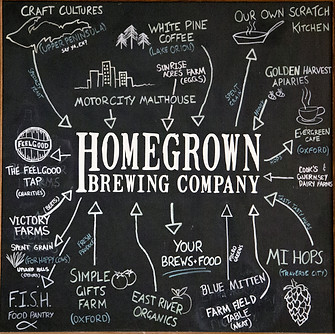 CRAFT CULTURES
(UPPER PENINSULA)
WHITE PINE
COFFEE
(LAKE ORION)
OUR OWN SCRATCH
KITCHEN
SUNRISE
ACRES FARM
(EGGS)
MOTORCITY MALTHOUSE
GOLDEN HARVEST
APIARIES
E-VERGREEN
CAFE
(OXFORD)
FEELGOOD
THE FEELGOOD
TAP
(CHARITIES)
HOMEGROWN
BREWING COMPANY
COOK'S &
GUERNSEY
DAIRY FARMS
VICTORY
FARMS
SPENT GRAIN
(FOR HAPPY COWS)
F.I.S.H.
FOOD PANTRY
SIMPLE
GIFTS
FARM
(OXFORD)
YOUR
BREWS + FOOD
EAST RIVER
ORGANICS
BLUE MITTEN
FARM FIELD
TABLE
(MEAT)
MI HOPS
(TRAVERSE CITY)